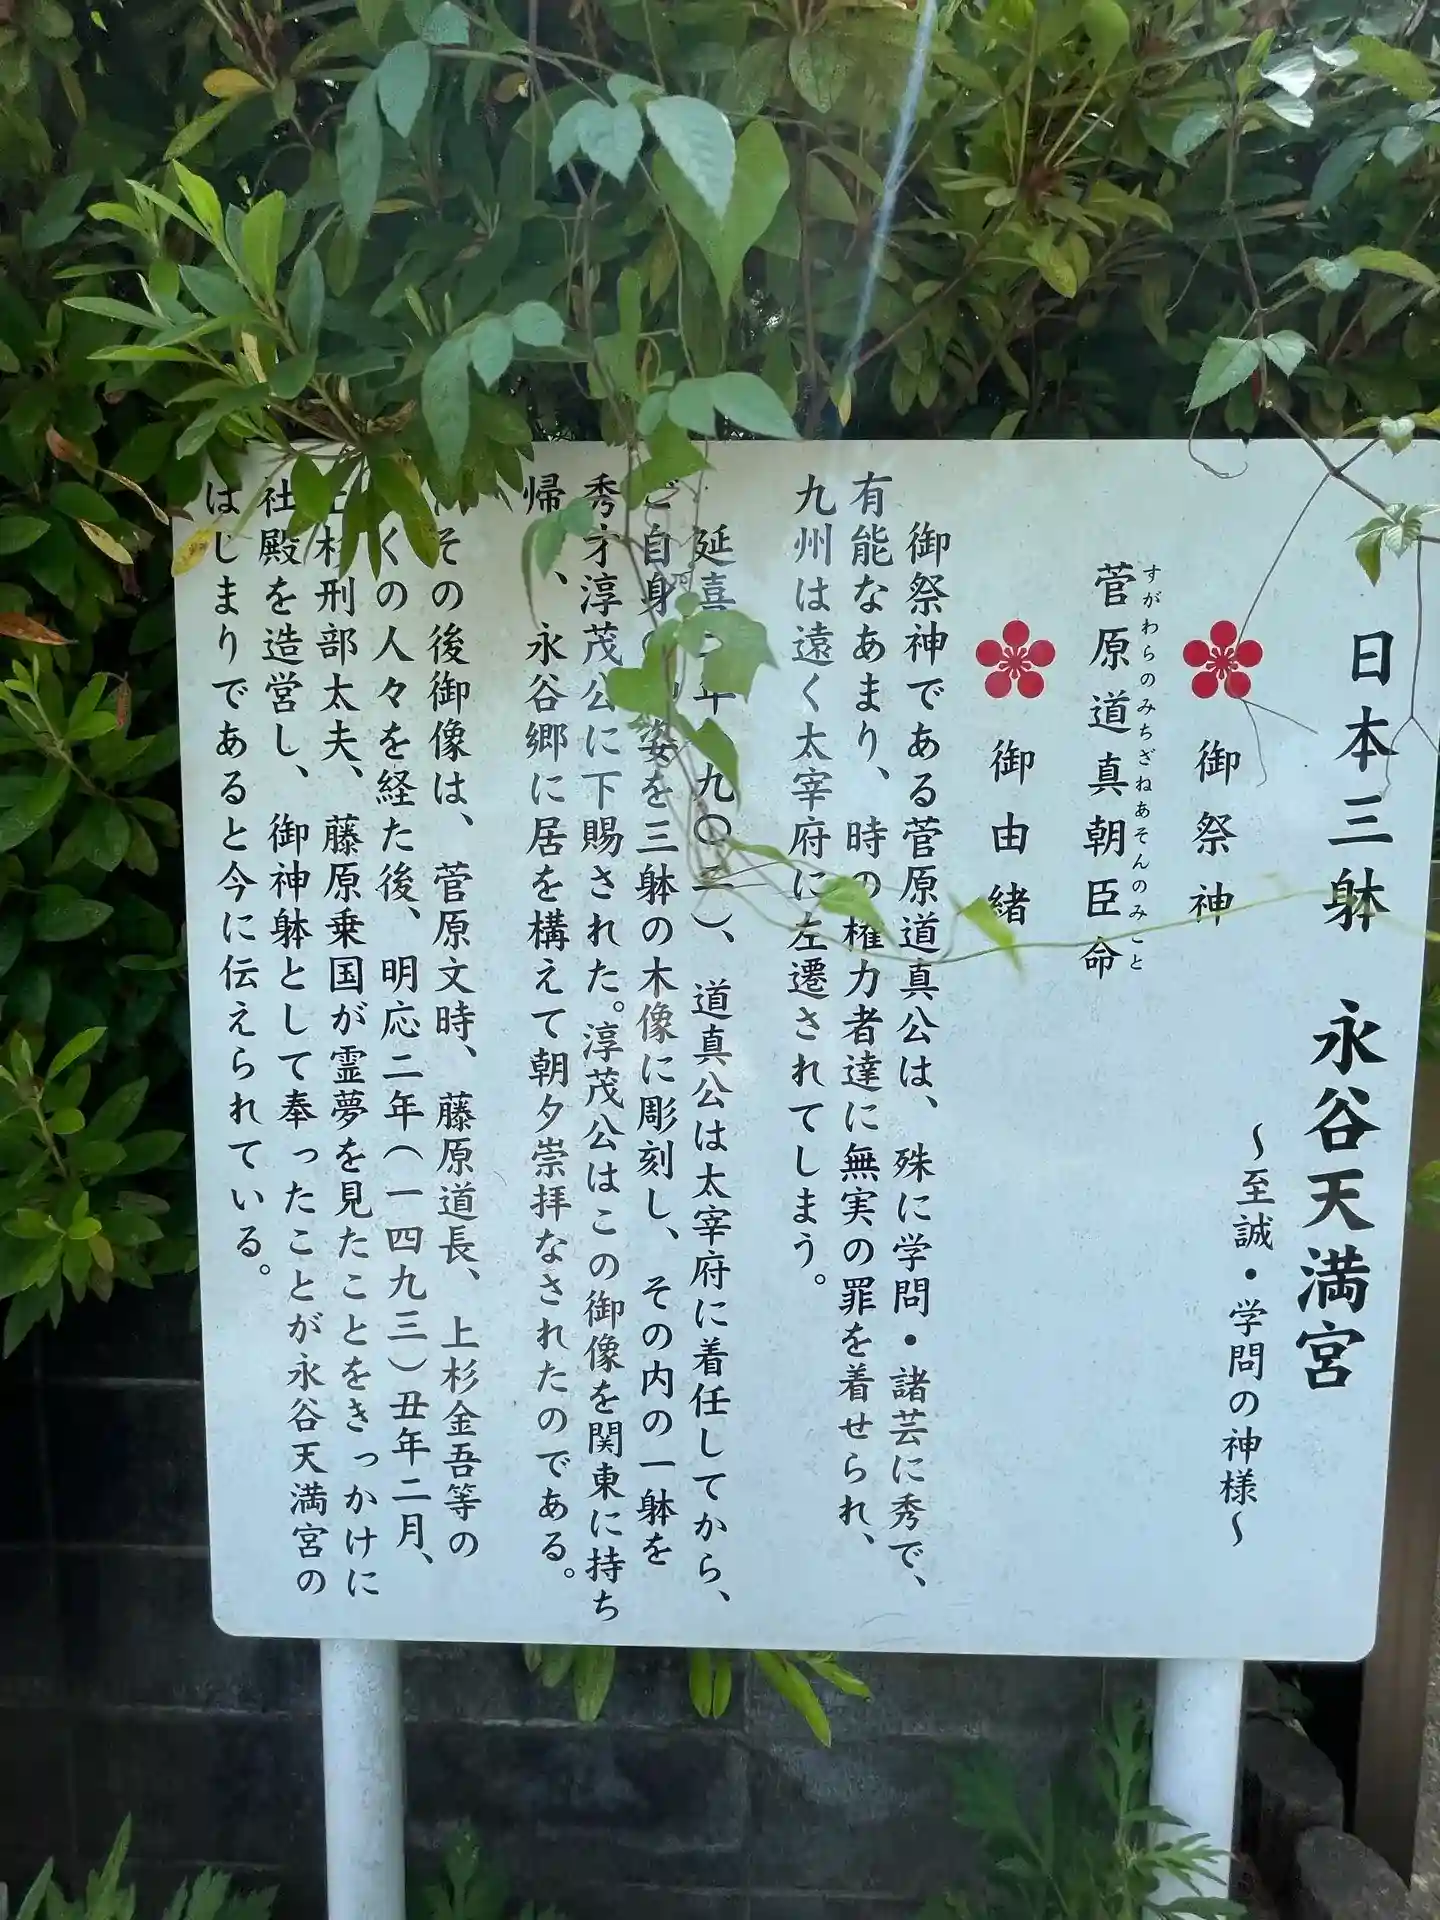 日本三躰　永谷天満宮
～至誠・学問の神様～
御祭神
菅原道真朝臣命
すがわらのみちざねあそんのみこと
御由緒
御祭神である菅原道真公は、殊に学問・諸芸に秀で、
有能なあまり、時の権力者達に無実の罪を着せられ、
九州は遠く太宰府に左遷されてしまう。
延喜　年　九〇二）、道真公は太宰府に着任してから、
ご自身の　姿を三躰の木像に彫刻し、その内の一躰を
秀才淳茂公に下賜された。淳茂公はこの御像を関東に持ち
帰　、永谷郷に居を構えて朝夕崇拝なされたのである。
その後御像は、菅原文時、藤原道長、上杉金吾等の
くの人々を経た後、明応二年（一四九三）丑年二月、
上杉刑部太夫、藤原乗国が霊夢を見たことをきっかけに
社殿を造営し、御神躰として奉ったことが永谷天満宮の
はじまりであると今に伝えられている。